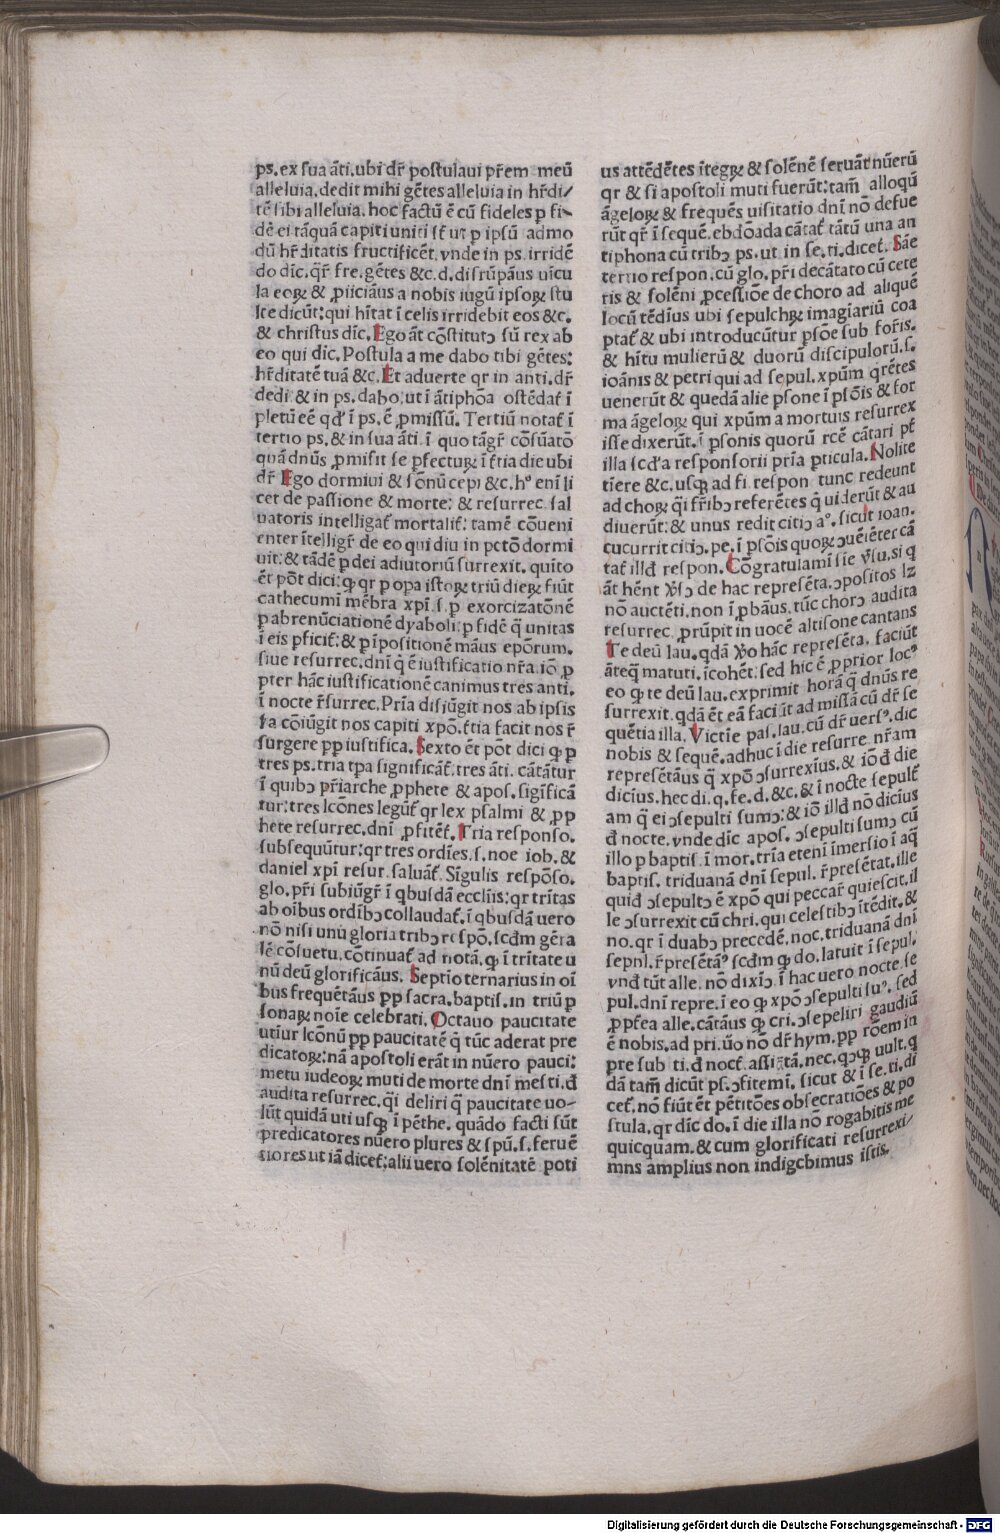 ps. ex sua āti. ubi dr̄ postulaui pr̄em meū
alleluia. dedit mihi gētes alleluia in hr̄di/
tē sibi alleluia. hoc factū ē cū fideles p fi-
dē ei tāquā capiti uniti st̄ ut p ipsū admo
dū hr̄ditatis fructificēt. vnde in ps. irridē
do dīc. qr̄ fre. gētes &c. d. disrūpāus uīcu
la eoꝝ & ꝓiiciāus a nobis iugū ipsoꝝ stu
lte dicūt: qui hītat ī celis irridebit eos &c.
& christus dīc. Ego āt cōstitutꝰ sū rex ab
eo qui dīc. Postula a me dabo tibi gētes:
hr̄ditatē tuā &c. Et aduerte qr in anti. dr̄
dedi & in ps. dabo: ut ī ātiphōa ostēdat᷑ ī
pletū eē qd' ī ps. ē ꝓmissū. Tertiū notat᷑ ī
tertio ps. & in sua āti. ī quo tāgr̄ cōsūatō
quā dnūs ꝓmisit se ꝑfectuꝝ ī t̄tia die ubi
dr̄ Ego dormiui & sōnū cepi &c. hꝰ enī li
cet de passione & morte: & resurrec. sal
uatoris intelligat᷑ mortalit᷑: tamē cōueni
enter ītelligr̄ de eo qui diu in pctō dormi
uit: & tādē p dei adiutoriū surrexit. quīto
ēt pōt dici: ꝙ qr p opa istoꝝ triū dieꝝ fiūt
cathecumī mēbra xpī. s. p exorcizatōnē
p abrenūciationē dyaboli: p fidē q̄ unitas
ī eis pficit᷑: & p īpositionē māus epōrum.
siue resurrec. dnī q̄ ē iustificatio nr̄a. iō ꝓ
pter hāc iustificationē canimus tres anti.
ī nocte r̄surrec. Pria disiūgit nos ab ipsis
s̄a cōiūgit nos capiti xpō. t̄tia facit nos r̄
surgere pp iustifica. Sexto ēt pōt dici ꝙ p
tres ps. tria tpa significāt᷑. tres āti. cātātur
ī quibꝰ pr̄iarche ꝓphete & apos. sigīficā
tur: tres lcōnes legūt᷑ qr lex psalmi & ꝓp
hete resurrec. dnī ꝓfitēt᷑. Tria responso.
subsequūtur: qr tres ordīes. s. noe iob. &
daniel xpī resur. saluāt᷑. Sīgulis respōso.
glo. pr̄i subiūgr̄ ī qbusdā eccliīs: qr trītas
ab oībus ordībꝰ collaudat᷑. ī qbusdā uero
nō nisi unū gloria tribꝰ respō. scdm gēra
lē cōsuetu. cōtinuat᷑ ad notā. ꝙ ī trītate u
nū deū glorificāus. Septīo ternarius in oī
bus frequētāus pp sacra. baptis. in triū p
sonaꝝ noīe celebrati. Octauo paucitate
utiur lcōnū pp paucitatē q̄ tūc aderat pre
dicatoꝝ: nā apostoli erāt in nūero pauci:
metu iudeoꝝ muti de morte dnī mesti. đ
audita resurrec. q̄i deliri q̄ paucitate uo-
lūt quidā uti usꝗ ī pēthe. quādo facti sūt
predicatores nūero plures & spū. s. feruē
tiores ut iā dicet᷑: alii uero solēnitatē poti
us attēdētes ītegꝝ & solēnē seruāt nūerū
qr & si apostoli muti fuerūt: tam̄ alloqū
āgeloꝝ & frequēs uisitatio dnī nō defue
rūt qr̄ ī sequē. ebdōada cātat᷑ tātū una an
tiphona cū tribꝰ ps. ut in se. ti. dicet᷑. Sāe
tertio respon. cū glo. pr̄i decātato cū cete
ris & solēni ꝓcessiōe de choro ad aliquē
locū tēdīus ubi sepulchꝝ imagiariū coa
ptat᷑ & ubi introducūtur psōe sub foris.
& hītu mulierū & duorū discipulorū. s.
ioānis & petri qui ad sepul. xpūm qrētes
uenerūt & quedā alie psone ī psōis & for
ma āgeloꝝ qui xpūm a mortuis resurrex
isse dixerūt. ī psonis quorū rcē cātari pt᷑
illa scd'a responsorii pria pticula. Nolite
tīere &c. usꝗ ad fi respon tunc redeunt
ad choꝝ q̄i fr̄ibꝰ referētes q̄ uiderūt & au
diuerūt: & unus redit citiꝰ aꝰ. sicut ioan.
cucurrit citiꝰ. pe. ī psōis quoꝝ ꝯuēiēter cā
tat᷑ illđ respon. Cōgratulamī sie v̄su. si q
āt hēnt v̄sꝰ de hac represēta. ꝯpositos lꝫ
nō auctēti. non īꝓbāus. tūc chorꝰ audita
resurrec. ꝓrūpit in uocē altisone cantans
Te deū lau. qdā v̄o hāc represēta. faciūt
āteq̄ matuti. īcohēt: sed hic ē ꝓprior locꝰ
eo ꝙ te deū lau. exprimit horā q̄ dnūs re
surrexit. qdā ēt eā faciūt ad missā cū dr̄ se
quētia illa. Victīe pas. lau. cū dr̄ uersꝰ. dic
nobis & sequē. adhuc ī die resurre. nr̄am
represētāus q̄ xpō ꝯsurrexīus. & iō đ die
dicīus. hec di. q. fe. d. &c. & ī nocte sepult᷑
am q̄ ei ꝯsepulti sumꝰ: & iō illđ nō dicīus
đ nocte. vnde dīc apos. ꝯsepulti sumꝰ cū
illo p baptis. ī mor. tria etenī īmersio ī aq̄
baptis. triduanā dnī sepul. r̄presētat. ille
quiđ ꝯsepultꝰ ē xpō qui peccar̄ quiescit. il
le ꝯsurrexit cū chri. qui celestibꝰ ītēdit. &
no. qr ī duabꝰ precedē. noc. triduanā dnī
sepul. r̄presētāꝰ scdm ꝙ do. latuit ī sepul.
vnđ tūt alle. nō dixīꝰ. ī hac uero nocte se
pul. dnī repre. ī eo ꝙ xpō ꝯsepulti suꝰ. sed
ꝓpt̄ea alle. cātāus ꝙ cri. ꝯsepeliri gaudiū
ē nobis. ad pri. ūo nō dr̄ hym. pp rōem in
pre sub ti. đ noct᷑ assītā. nec. qꝯꝗ uult. q
dā tam̄ dicūt ps. ꝯfitemī. sicut & ī se. ti. di
cet᷑. nō fiūt ēt pētitōes obsecratiōes & po
stula. qr dīc do. ī die illa nō rogabitis me
quicquam. & cum glorificati resurrexi/
mns amplius non indigebimus istis.
Digitalisierung gefördert durch die Deutsche Forschungsgemeinschaft - DFG